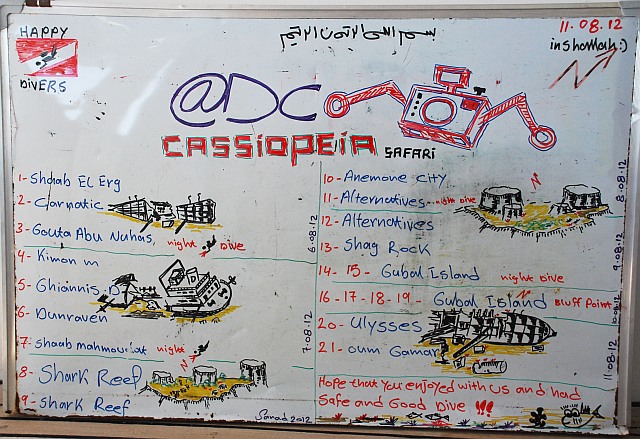 HAPPY
DIVERS
11.08.12
inshallah :)
@DC
CASSIOPEIA SAFARI
1- Shaab EL Erg
2- Carnatic
3- Gouta Abu Nuhas, night Dive
6.08.12
4- Kimon m
5- Ghiannis.D
6- Dunraven
7- Shaab mahmoudat night
7.08.12
8- Shark Reef
9- Shark Reef
Sanad 2012
10- Anemone CITY
11- Alternatives night Dive
8.08.12
12- Alternatives
13- Shag Rock
14- 15- Gubal Island night Dive
9.08.12
16-17-18-19- Gubal Island Bluff Point
10.08.12
20- Ulysses
21- oum Gamar
11.08.12
Hope that you enjoyed with us and had
Safe and Good Dive !!!